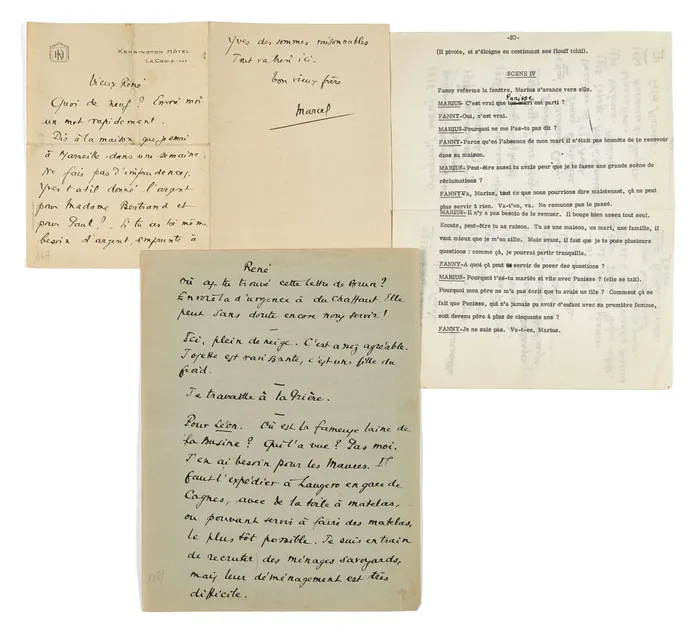 KENSINGTON HÔTEL
LA CROIX
Vieux René
Quoi de neuf ? Envoie moi
un mot rapidement.
Dis à la maison que je serai
à Marseille dans une semaine.
Ne fais pas d'imprudences.
Yves t'a til donné l'argent
pour Madame Bertrand et
pour Paul ? Si tu as toi même
besoin d'argent, emprunte à
Yves des sommes raisonnables
Tout va bien ici.
bon vieux frère
Marcel
-20-
(Il pivote, et s'éloigne en continuant ses flouff tchii).
SCENE IV
Fanny referme la fenêtre, Marius s'avance vers elle.
Panisse
MARIUS- C'est vrai que mari est parti ?
FANNY-Oui, c'est vrai.
MARIUS-Pourquoi ne me l'as-tu pas dit ?
FANNY-Parce qu'en l'absence de mon mari il n'était pas honnête de te recevoir
dans sa maison.
MARIUS-Peut-être aussi tu avais peur que je te fasse une grande scène de
réclamations ?
FANNY-Va, Marius, tout ce que nous pourrions dire maintenant, çà ne peut
plus servir à rien. Va-t'en, va. Ne remuons pas le passé.
MARIUS-Il n'y a pas besoin de le remuer. Il bouge bien assez tout seul.
Ecoute, peut-être tu as raison. Tu as une maison, un mari, une famille, il
vaut mieux que je m'en aille. Mais avant, il faut que je te pose plusieurs
questions : comme çà, je pourrai partir tranquille.
FANNY-A quoi çà peut servir de poser des questions ?
MARIUS-Pourquoi t'es-tu mariée si vite avec Panisse ? (elle se tait).
Pourquoi mon père ne m'a pas écrit que tu avais un fils ? Comment çà se
fait que Panisse, qui n'a jamais pu avoir d'enfant avec sa première femme,
soit devenu père à plus de cinquante ans ?
FANNY-Je ne sais pas. Va-t-en, Marius.
René
où as tu trouvé cette lettre de Brun ?
Envoie la d'urgence à du Chaffaut. Elle
peut sans doute encore nous servir !
Ici, plein de neige. C'est assez agréable.
Josette est ravissante, c'est une fille du
froid.
Je travaille à la Prière.
Pour Léon. Où est la fameuse laine de
la Buzine ? Qui l'a vue ? Pas moi.
J'en ai besoin pour les Maures. Il
faut l'expédier à Laugero en gare de
Cagnes, avec de la toile à matelas,
ou pouvant servir à faire des matelas,
le plus tôt possible. Je suis en train
de recruter des ménages savoyards,
mais leur déménagement est très
difficile.